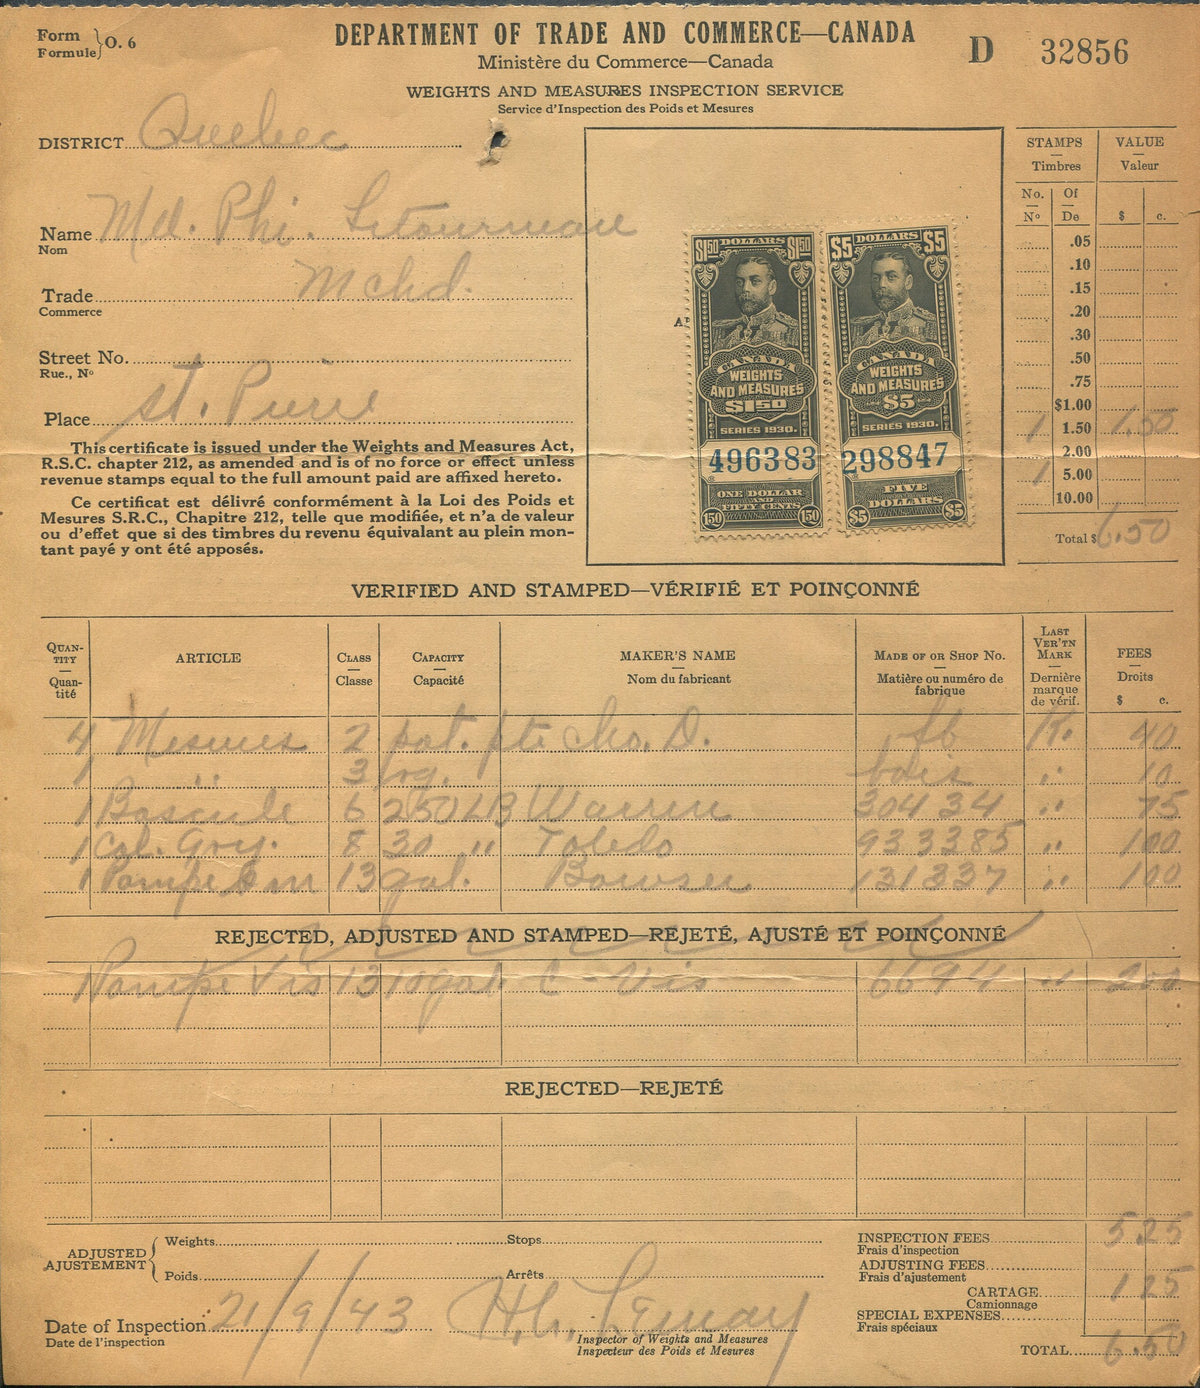 Form
Formule } O. 6
DEPARTMENT OF TRADE AND COMMERCE—CANADA
Ministère du Commerce—Canada
D 32856
WEIGHTS AND MEASURES INSPECTION SERVICE
Service d'Inspection des Poids et Mesures
DISTRICT Quebec
Name Md. Phi. Letourneau
Nom
Trade Mchd.
Commerce
Street No.
Rue., Nº
Place St. Pierre
This certificate is issued under the Weights and Measures Act,
R.S.C. chapter 212, as amended and is of no force or effect unless
revenue stamps equal to the full amount paid are affixed hereto.
Ce certificat est délivré conformément à la Loi des Poids et
Mesures S.R.C., Chapitre 212, telle que modifiée, et n'a de valeur
ou d'effet que si des timbres du revenu équivalant au plein mon-
tant payé y ont été apposés.
$1.50 DOLLARS $1.50
CANADA
WEIGHTS
AND MEASURES
$1.50
SERIES 1930.
496383
ONE DOLLAR
AND
FIFTY CENTS
150 150
$5 DOLLARS $5
CANADA
WEIGHTS
AND MEASURES
$5
SERIES 1930.
298847
FIVE
DOLLARS
$5 $5
STAMPS VALUE
Timbres Valeur
No. Of
Nº De $ c.
.05
.10
.15
.20
.30
.50
.75
$1.00
1 1.50 1.50
2.00
1 5.00
10.00
Total $ 6.50
VERIFIED AND STAMPED—VÉRIFIÉ ET POINÇONNÉ
QUAN-
TITY
Quan-
tité
ARTICLE
CLASS
Classe
CAPACITY
Capacité
MAKER'S NAME
Nom du fabricant
MADE OF OR SHOP NO.
Matière ou numéro de
fabrique
LAST
VER'TN
MARK
Dernière
marque
de vérif.
FEES
Droits
$ c.
4 Mesures 2 pot. pte Cho. D. fb K. 40
1 " 3 bois " 10
1 Bascule 6 250 LB Warren 30434 " 75
1 Cal. Groy. 8 30 " Toledo 933385 " 100
1 Pompe 13 gal. Bowser 131337 " 100
REJECTED, ADJUSTED AND STAMPED—REJETÉ, AJUSTÉ ET POINÇONNÉ
1 Pompe Vis 13 10 gal. C - Vis 6694 " 200
REJECTED—REJETÉ
ADJUSTED
AJUSTEMENT
Weights Stops
Poids Arrêts
Date of Inspection 21/9/43
Date de l'inspection
H. C. Lemay
Inspector of Weights and Measures
Inspecteur des Poids et Mesures
INSPECTION FEES 5.25
Frais d'inspection
ADJUSTING FEES
Frais d'ajustement 1.25
CARTAGE
Camionnage
SPECIAL EXPENSES
Frais spéciaux
TOTAL 6.50